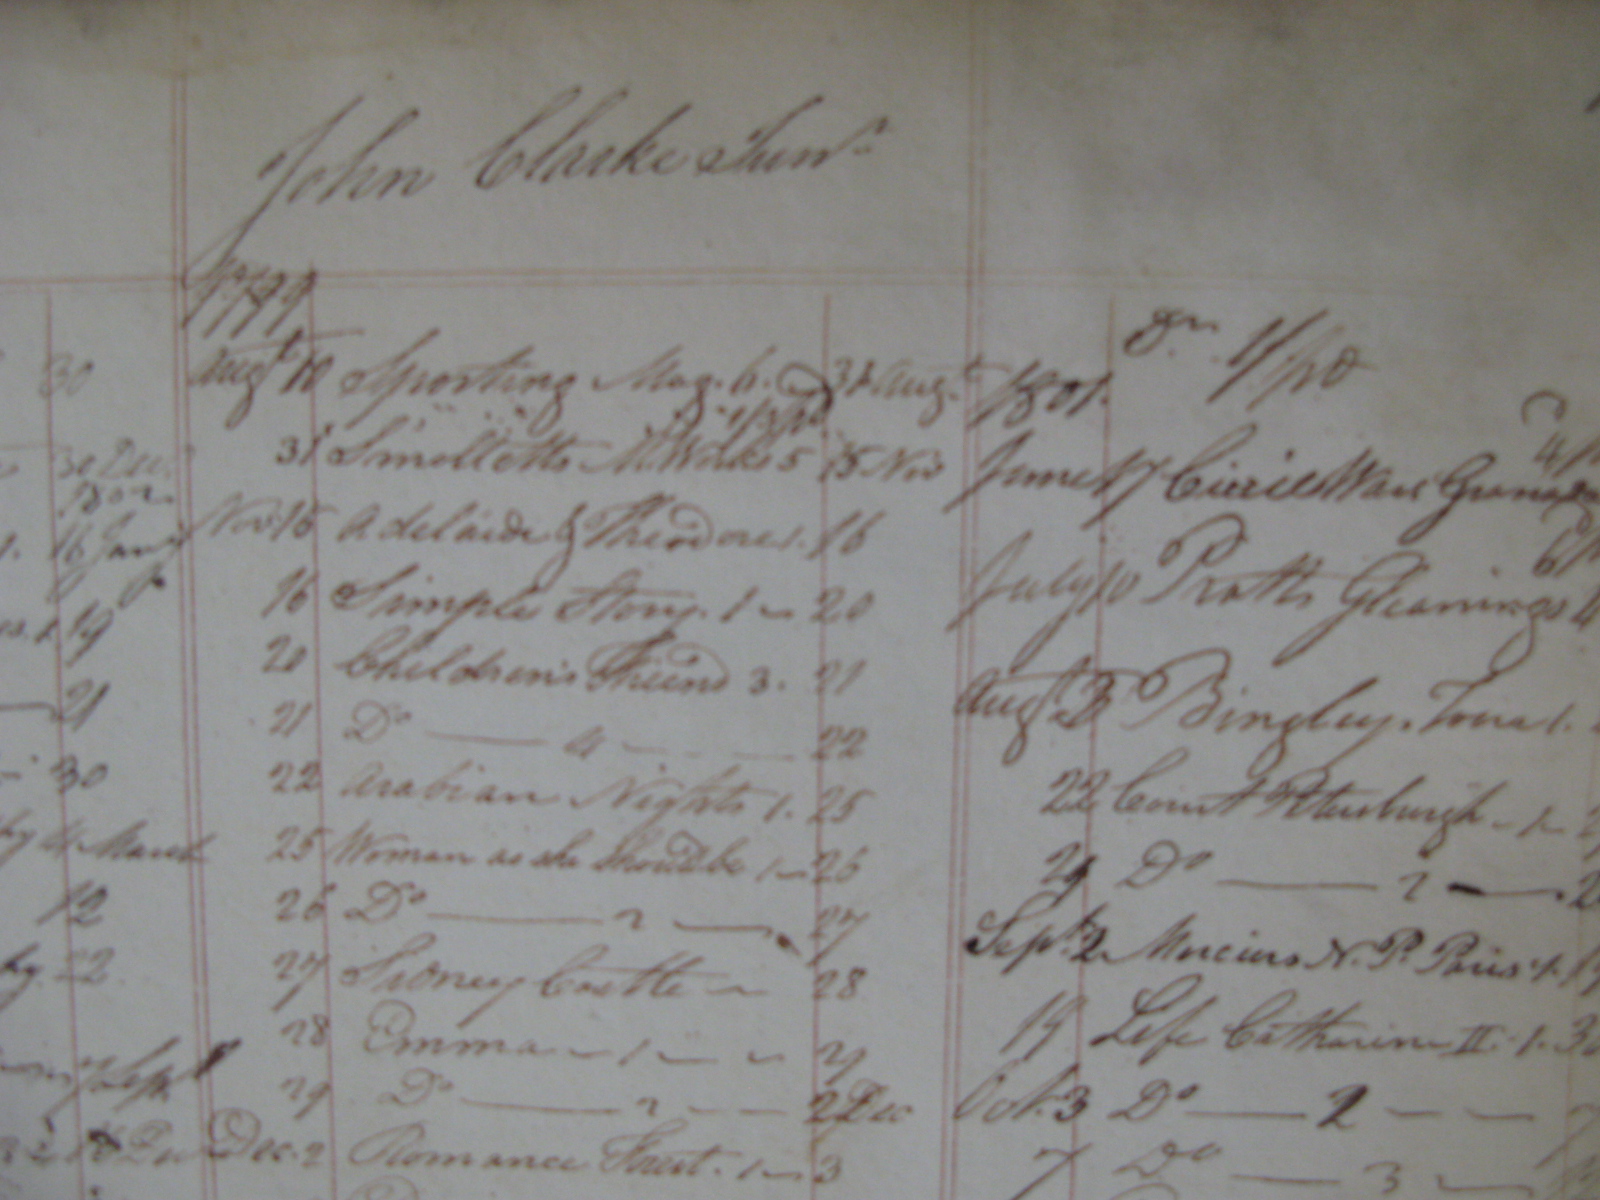 John Clarke Junr
1799
Augt 10 Sporting Mag. 6. 31 Augt
31 Smolletts M. Works 5 15 Nov
Nov. 15 Adelaide & Theodore 1. 16
16 Simple Story. 1 20
20 Children's Friend 3. 21
21 Do 4 22
22 Arabian Nights 1. 25
25 Woman as she should be 1 26
26 Do 2 27
27 Sidney Castle 28
28 Emma 1 29
29 Do 2 2 Dec
Dec. 2 Romance Forest. 1 3
1801.
June 17
July 10 Pratts Gleanings
Augt Bingley. Tour 1.
22 Court Petersburgh 1
29 Do 2
Sept. 2 Merciers N. P. Paris 1.
19 Life Catharine II. 1.
Oct. 3 Do 2
7 Do 3
30
30 Dec.
1802.
16 Jany
19
21
30
4 March
12
22
Sept